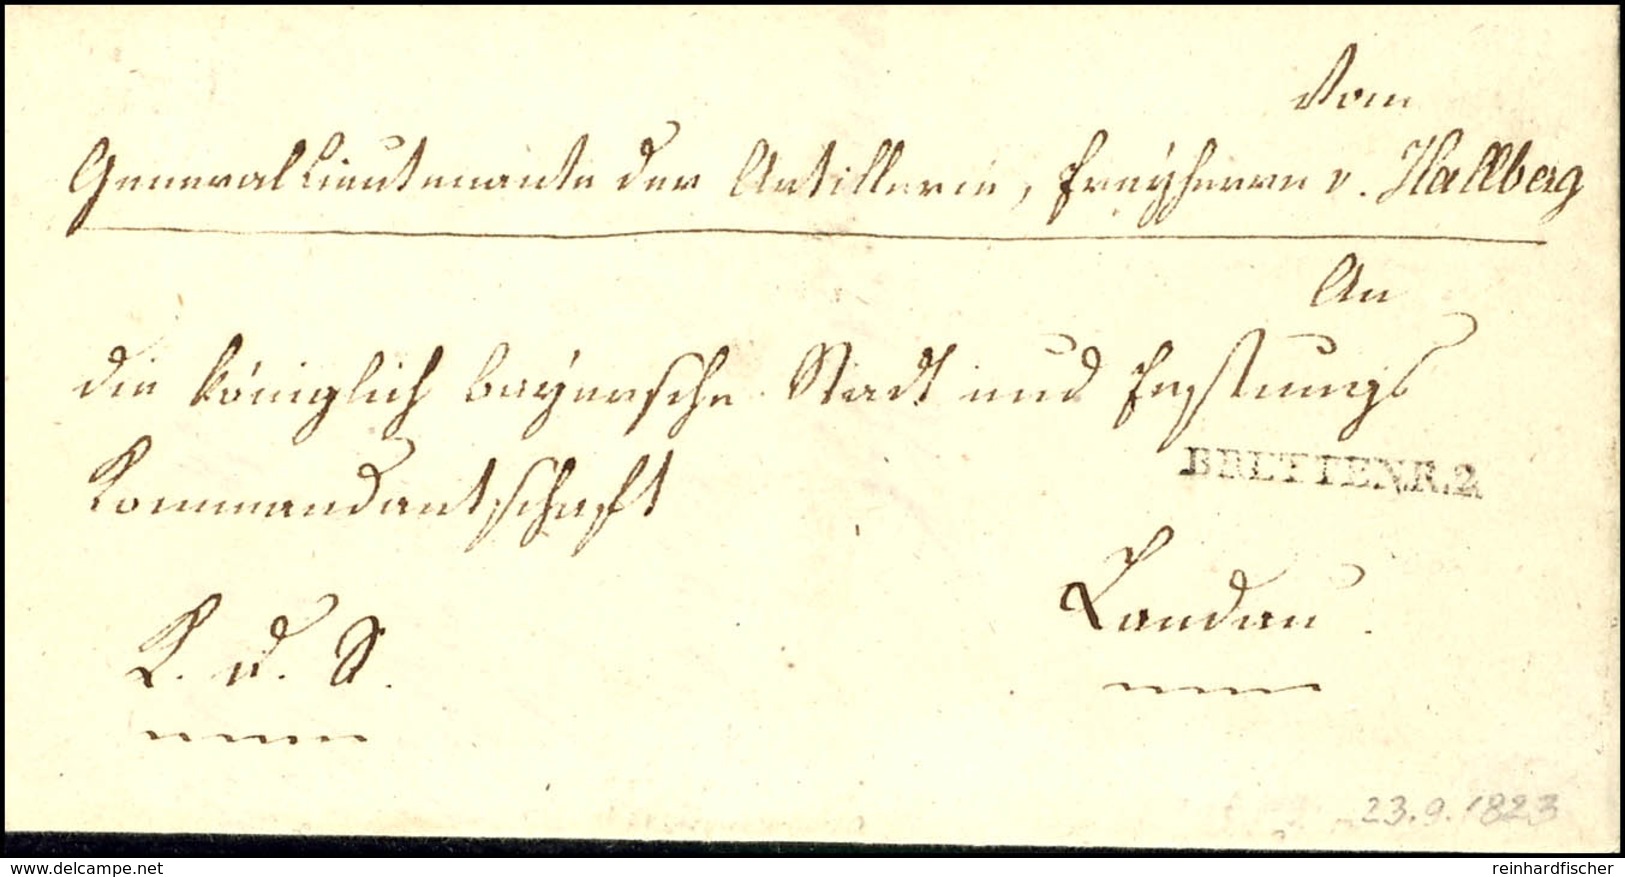 Vom
General Lieutenante der Artillerie, Freÿherrn v. Hallberg
An
die königlich bayersche Stadt und Festungs
BRETTEN.R.2.
Kommandantschaft
Landau.
K. d. S.
23.9.1823
www.delcampe.net
reinhardfischer